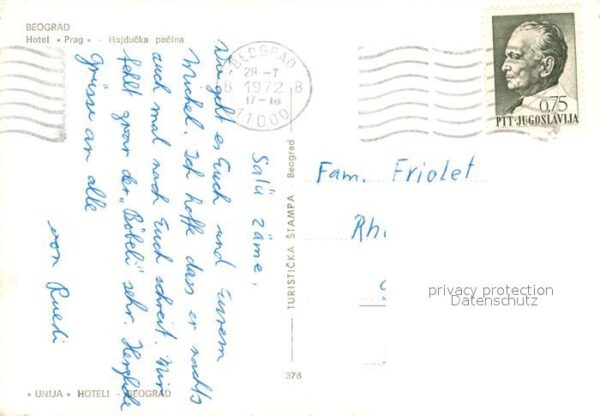 BEOGRAD
Hotel « Prag » - Hajdučka pećina
BEOGRAD
28-1
B 1972 B
17-18
11000
0,75
PTT-JUGOSLAVIJA
Salü zäme,
Wie geht es Euch und Eurem
Michel. Ich hoffe dass er nachts
auch mal nach Euch schreit. Mir
fehlt zwar der "Böbeli" sehr. Herzliche
Grüsse an alle
von Ruedi
Fam. Friolet
Rh
privacy protection
Datenschutz
TURISTIČKA ŠTAMPA - Beograd
378
« UNIJA » HOTELI - BEOGRAD